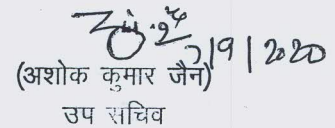 7/9/2020
(अशोक कुमार जैन)
उप सचिव